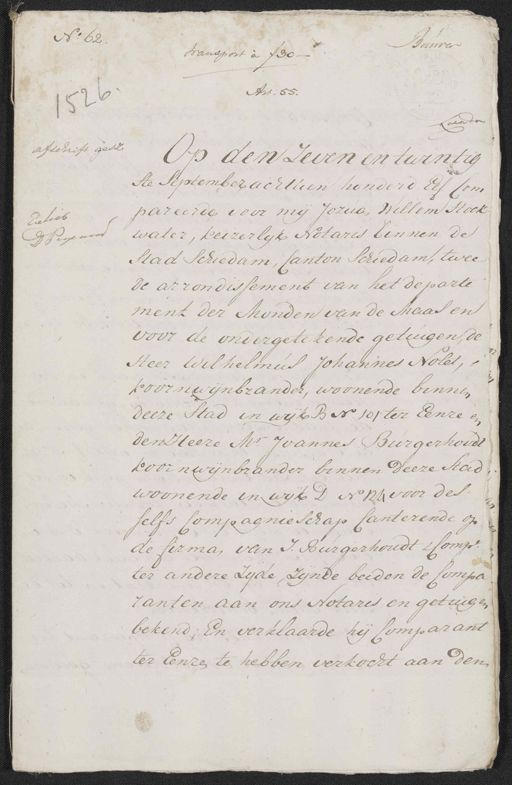 No 62.
transport à f30—
Art. 55.
1526.
afschrift gest.
Op den Zeven en twintig
ste September achttien honderd Elf Com
pareerde voor mij Jozua, Willem Stock
water, keizerlyk Notaris binnen de
Stad Schiedam, Canton Schiedam, twee
de arrondissement van het departe
ment der Monden van de Maas en
voor de ondergetekende getuigen, de
Heer Wilhelmús Johannes Nolet,
koornwijnbrander, woonende binnen
deeze Stad in wijk B No 101 ter Eenre en
den Heere Mr Joannes Burgerhoudt
koornwijnbrander binnen Deeze Stad
woonende in wijk D No 124 voor des
selfs Compagnieschap Canterende op
de firma, van J. Burgerhoudt & Comp
ter andere Zyde, Zynde beiden de Compa
ranten aan ons Notaris en getuigen
bekend; En verklaarde hij Comparant
ter Eenre, te hebben verkocht aan den